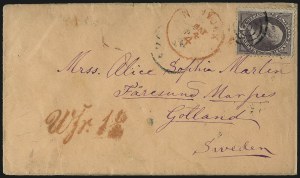 Mrss. Alice Sophia Martin
Faresund Marpes
Gotland
Sweden
Wfr. 12